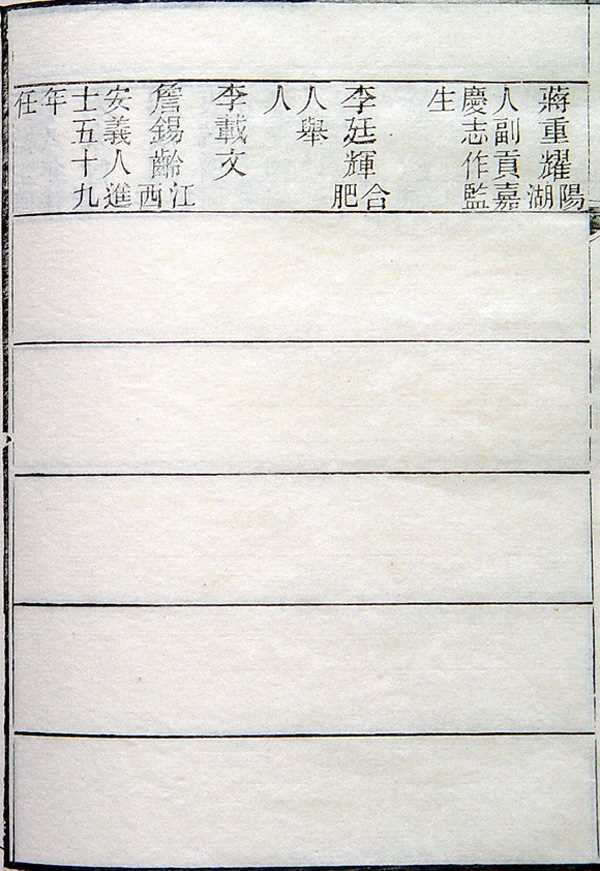 蔣重耀陽湖
人副貢嘉
慶志作監
生
李廷輝合肥
人舉
人
李載文
詹錫齡江西
安義人進
士五十九
年
任